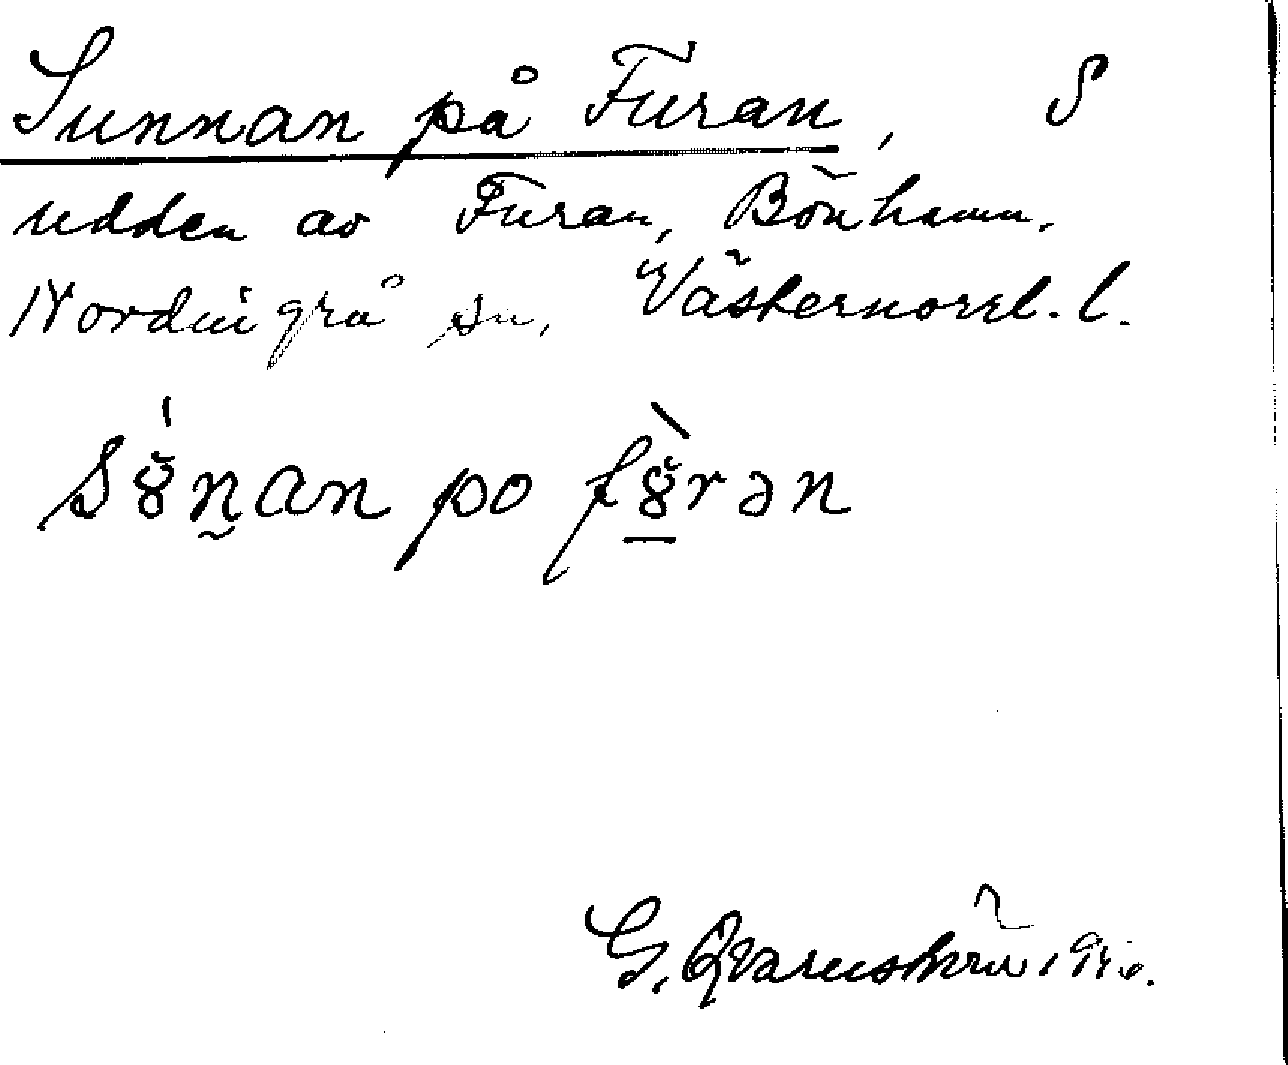 Sunnan på Furan, S
udden av Furan, Bönhamn.
Nordingrå sn, Västernorrl. l.
sȣ́n̰an po fȣ̀rən
G. Qvarnström